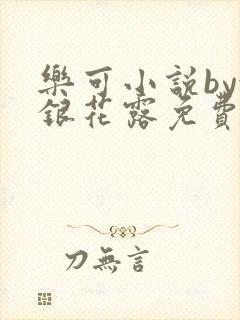 樂可小説by
銀花露免費
刀無言